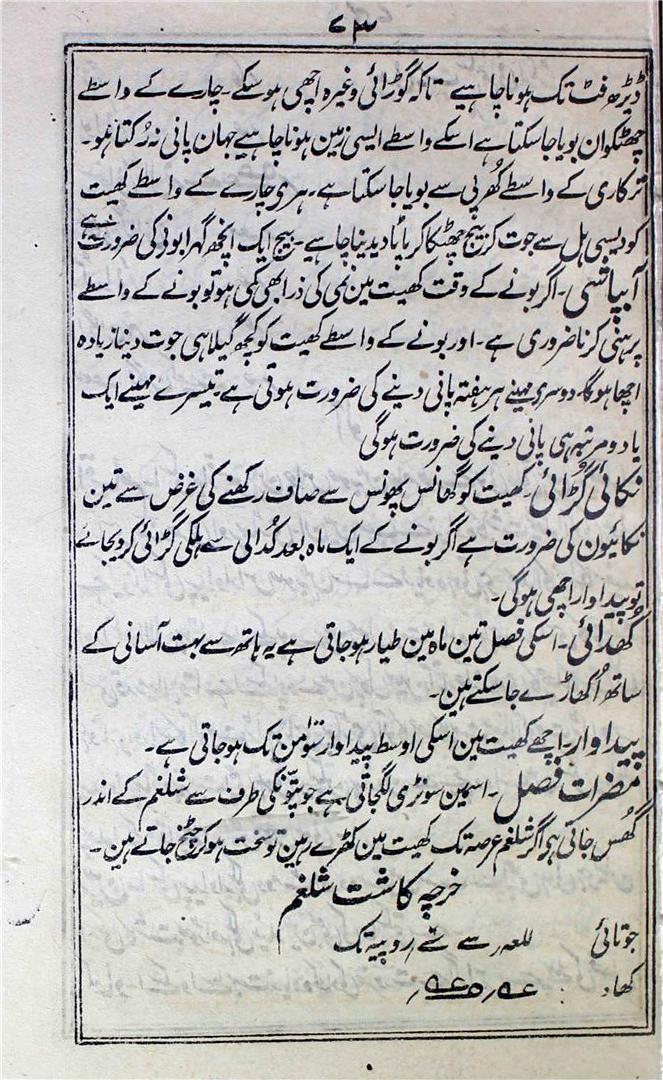 ۷۳
ڈیڑھ فٹ تک ہونا چاہیے تاکہ گوڑائی وغیرہ اچھی ہو سکے۔ چارے کے واسطے
چھٹکوان بویا جاسکتا ہے اسکے واسطے ایسی زمین ہونا چاہیے جہان پانی نہ رُکتا ہو۔
ترکاری کے واسطے کُھرپی سے بویا جاسکتا ہے۔ ہری چارے کے واسطے کھیت
کو دیسی ہل سے جوت کر بیج چھٹکا کر پاٹا دیدینا چاہیے۔ بیج ایک انچھ گہرا بونی کی ضرورت ہے
آبپاشی۔ اگر بونے کے وقت کھیت مین نمی کی ذرا بھی کمی ہو تو بونے کے واسطے
پرہنی کرنا ضروری ہے۔ اور بونے کے واسطے کھیت کو کچھ گیلا ہی جوت دینا زیادہ
اچھا ہوگا۔ دوسری مہینے ہر ہفتہ پانی دینے کی ضرورت ہوتی ہے۔ تیسرے مہینے ایک
یا دو مرتبہ ہی پانی دینے کی ضرورت ہوگی
نکائی گُڑائی۔ کھیت کو گھانس پھونس سے صاف رکھنے کی غرض سے تین
نکائیون کی ضرورت ہے اگر بونے کے ایک ماہ بعد کُدالی سے ہلکی گڑائی کردیجائے
تو پیداوار اچھی ہوگی۔
کُھدائی۔ اسکی فصل تین ماہ مین طیار ہوجاتی ہے یہ ہاتھ سے بہت آسانی کے
ساتھ اُکھاڑے جاسکتے ہین۔
پیداوار۔ اچھے کھیت مین اسکی اوسط پیداوار سَو من تک ہوجاتی ہے۔
مضرات فصل۔ اسمین سونڑی لگجاتی ہے جو پتّونکی طرف سے شلغم کے اندر
گُھس جاتی ہی اگر شلغم عرصہ تک کھیت مین کھڑے رہین تو سخت ہوکر چٹخ جاتے ہین۔
خرچہ کاشت شلغم
جوتائی سے روپیہ تک
کھاد